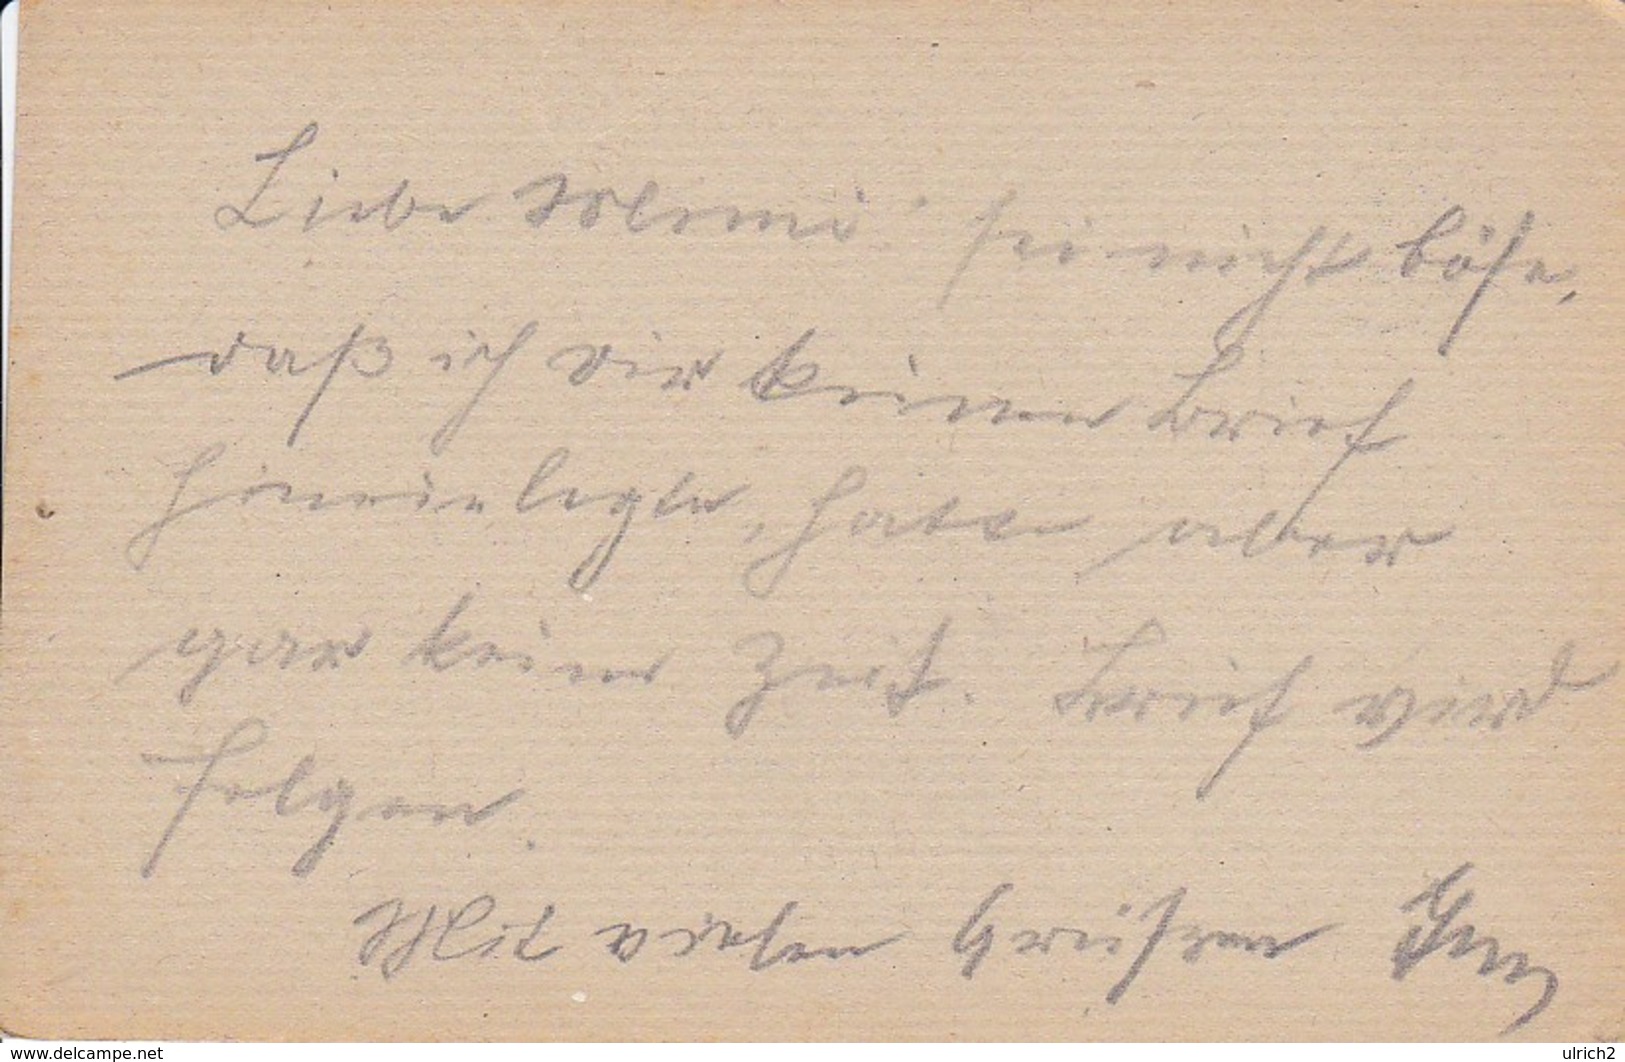 Liebe sei nicht böse,
daß ich dir keinen Brief
hineinlegte, habe aber
gar keine Zeit. Brief wird
folgen.
Mit vielen Grüßen
www.delcampe.net
ulrich2